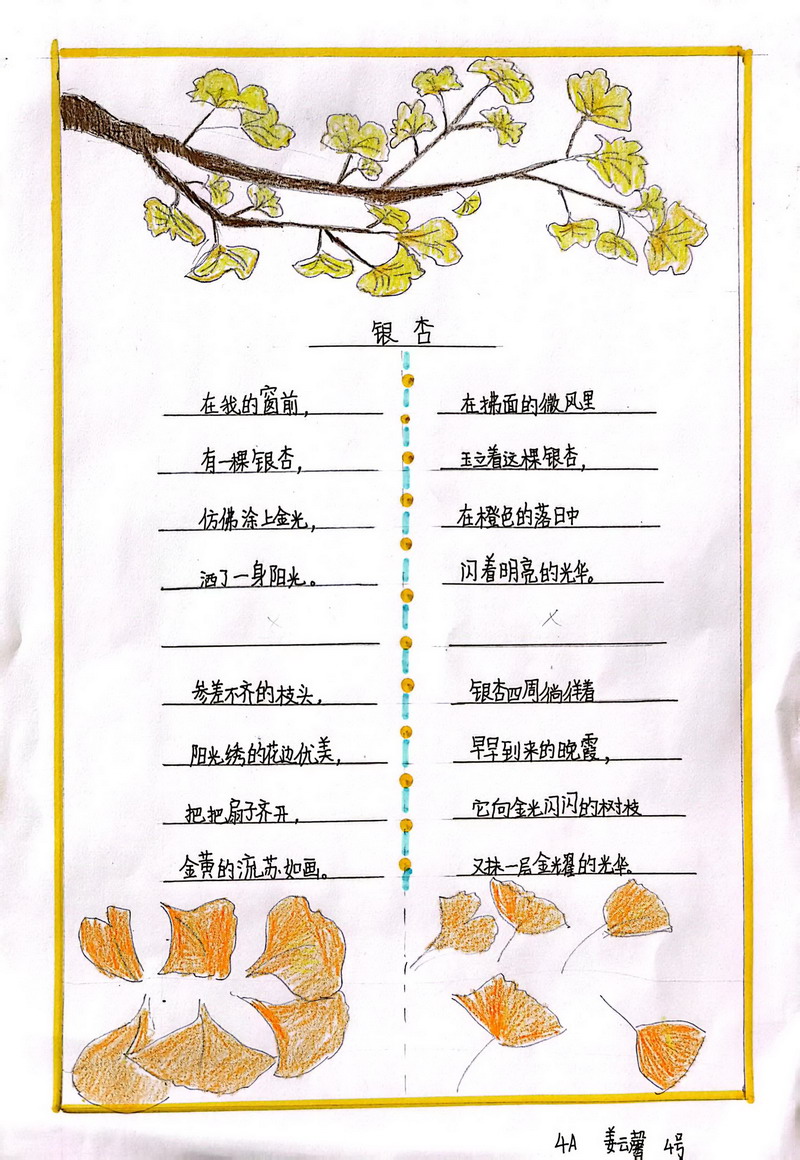 银杏
在我的窗前，
有一棵银杏，
仿佛涂上金光，
洒了一身阳光。
参差不齐的枝头，
阳光绣的花边优美，
把把扇子齐开，
金黄的流苏如画。
在拂面的微风里
玉立着这棵银杏，
在橙色的落日中
闪着明亮的光华。
银杏四周徜徉着
早早到来的晚霞，
它向金光闪闪的树枝
又抹一层金耀的光华。
4A 姜云馨 4号